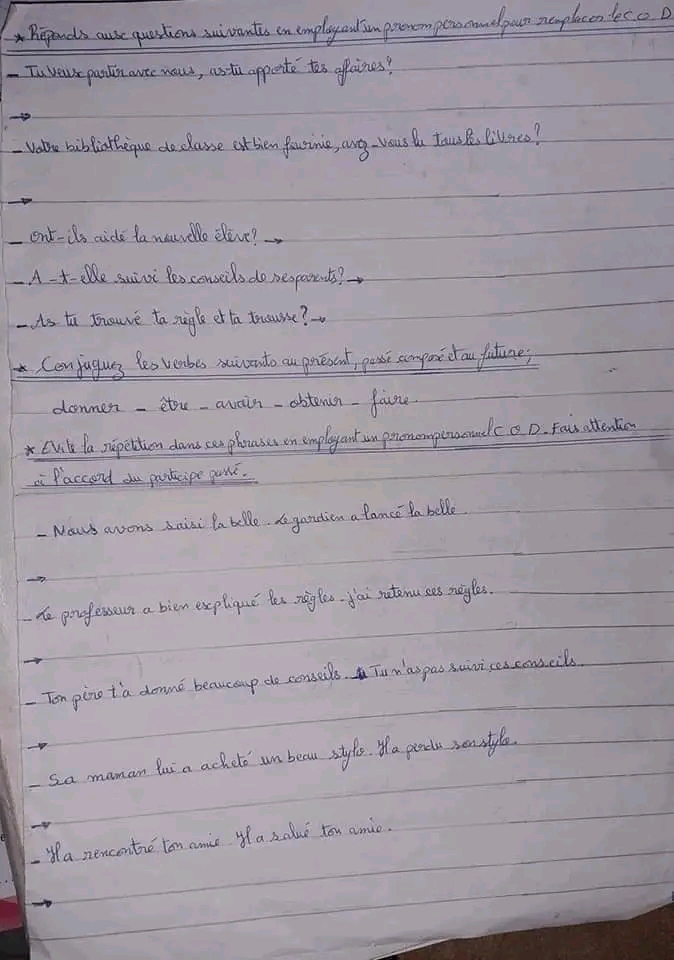 * Réponds aux questions suivantes en employant un pronom personnel pour remplacer le C.O.D
- Tu veux partir avec nous, as-tu apporté tes affaires?
→
- Votre bibliothèque de classe est bien fournie, avez-vous lu tous les livres?
→
- Ont-ils aidé la nouvelle élève? →
- A-t-elle suivi les conseils de ses parents? →
- As tu trouvé ta règle et ta trousse? →
* Conjuguez les verbes suivants au présent, passé composé et au future;
donner - être - avoir - obtenir - faire.
* Evite la répétition dans ces phrases en employant un pronom personnel C.O.D. Fais attention
à l'accord du participe passé.
- Nous avons saisi la belle. Le gardien a lancé la belle.
→
- Le professeur a bien expliqué les règles. j'ai retenu ces règles.
→
- Ton père t'a donné beaucoup de conseils. Tu n'as pas suivi ces conseils.
→
- Sa maman lui a acheté un beau stylo. Il a perdu son stylo.
→
- Il a rencontré ton amie. Il a salué ton amie.
→